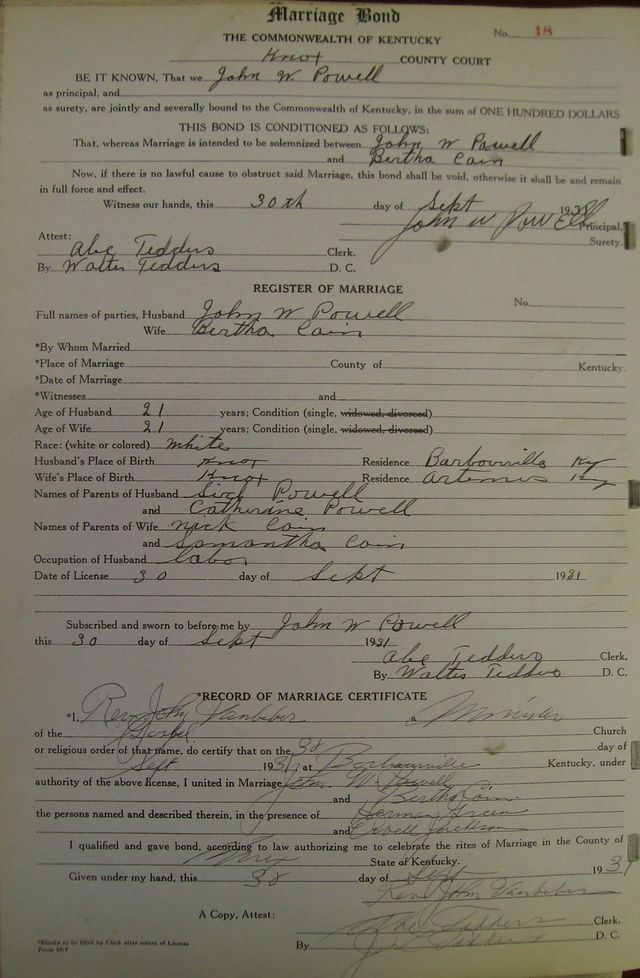 Marriage Bond
No. 18
THE COMMONWEALTH OF KENTUCKY
Knox COUNTY COURT
BE IT KNOWN, That we John W. Powell
as principal, and
as surety, are jointly and severally bound to the Commonwealth of Kentucky, in the sum of ONE HUNDRED DOLLARS
THIS BOND IS CONDITIONED AS FOLLOWS:
That, whereas Marriage is intended to be solemnized between John W Powell
and Bertha Cain
Now, if there is no lawful cause to obstruct said Marriage, this bond shall be void, otherwise it shall be and remain
in full force and effect.
Witness our hands, this 30th day of Sept 1931
John W Powell Principal,
Surety.
Attest:
Abe Tedders Clerk.
By Walter Tedders D. C.
REGISTER OF MARRIAGE
No.
Full names of parties, Husband John W Powell
Wife Bertha Cain
*By Whom Married
*Place of Marriage County of Kentucky.
*Date of Marriage
*Witnesses and
Age of Husband 21 years; Condition (single, widowed, divorced)
Age of Wife 21 years; Condition (single, widowed, divorced)
Race: (white or colored) White
Husband's Place of Birth Knox Residence Barbourville Ky
Wife's Place of Birth Knox Residence Artemus Ky
Names of Parents of Husband Powell
and Catherine Powell
Names of Parents of Wife Nick Cain
and Samantha Cain
Occupation of Husband Labor
Date of License 30 day of Sept 1931
Subscribed and sworn to before me by John W Powell
this 30 day of Sept 1931
Abe Tedders Clerk.
By Walter Tedders D. C.
*RECORD OF MARRIAGE CERTIFICATE
*I, Rev. John Vanbeber a Minister
of the Gospel Church
or religious order of that name, do certify that on the 30 day of
Sept 1931, at Barbourville Kentucky, under
authority of the above license, I united in Marriage John W. Powell
and Bertha Cain
the persons named and described therein, in the presence of Herman Green
and Jackson
I qualified and gave bond, according to law authorizing me to celebrate the rites of Marriage in the County of
Knox State of Kentucky.
Given under my hand, this 30 day of Sept 1931
Rev. John Vanbeber
A Copy, Attest: Abe Tedders Clerk.
By Tedders D. C.
*Blanks to be filled by Clerk after return of License
Form M-7